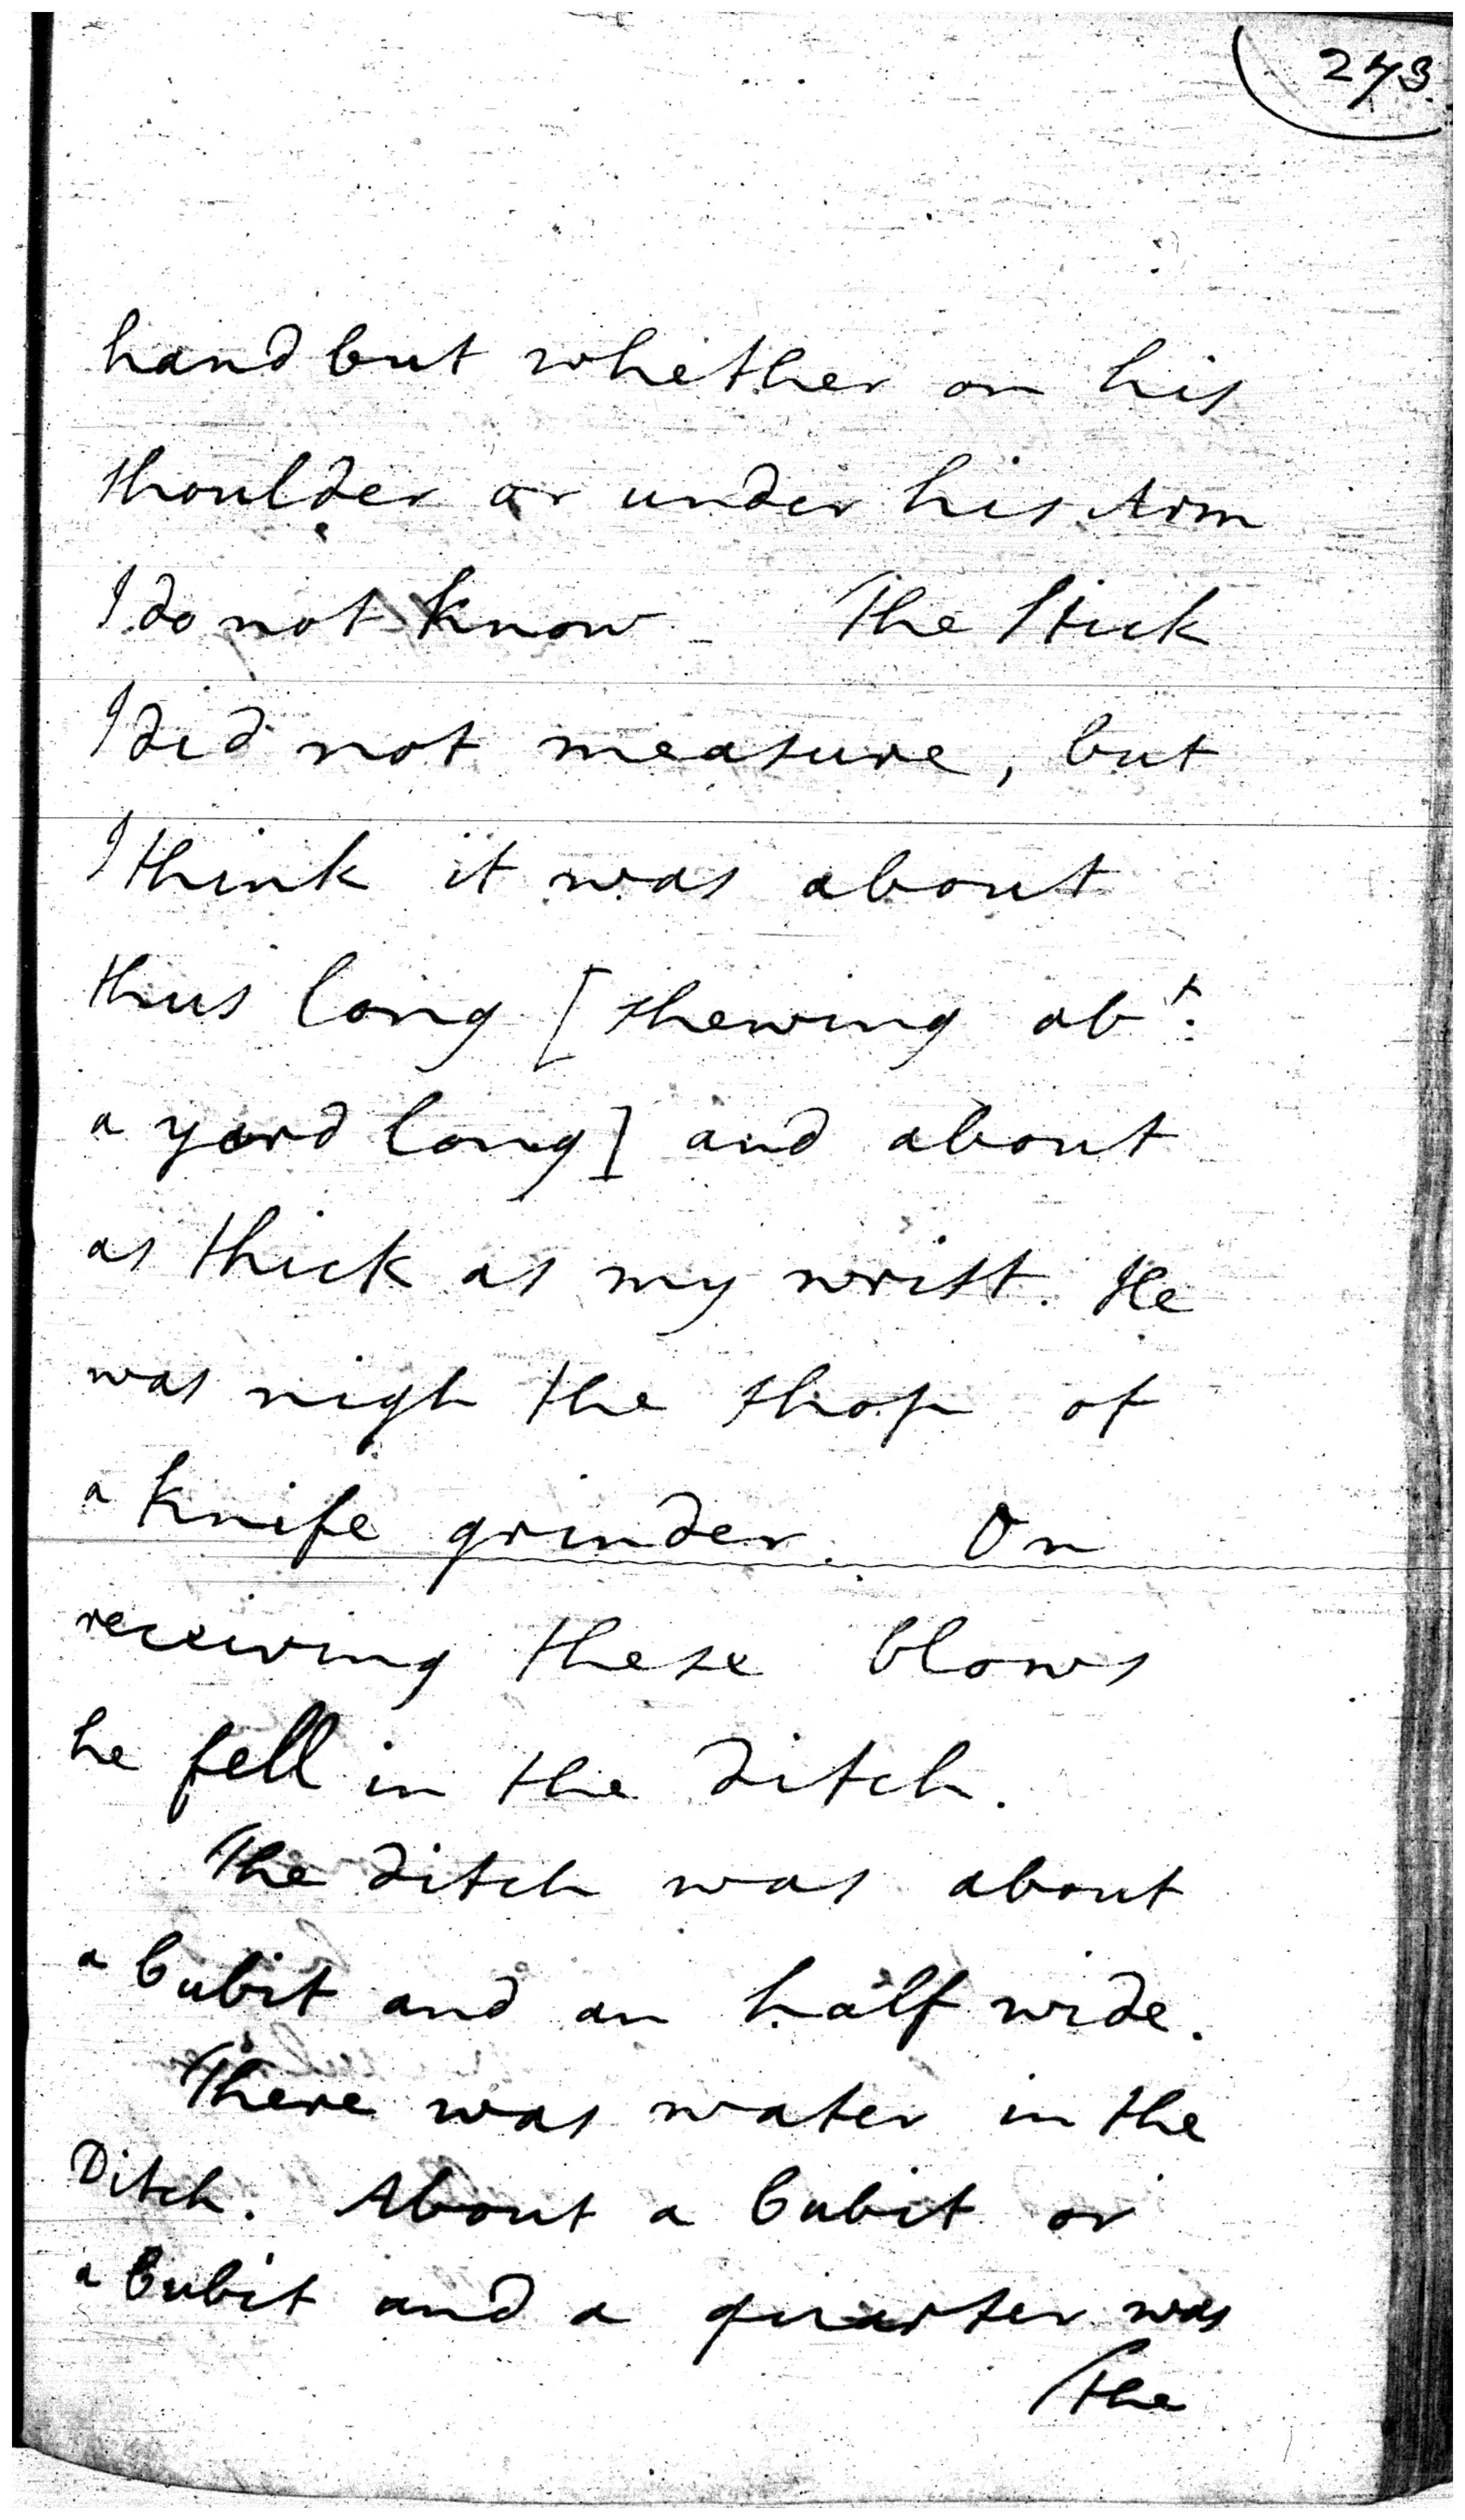 243.
hand but whether on his
shoulder or under his Arm
I do not know - The Stick
I did not measure, but
I think it was about
thus long [shewing abt.
a yard long] and about
as thick as my wrist. He
was nigh the shop of
a Knife grinder. On
receiving these blows
he fell in the ditch.
The ditch was about
a Cubit and an half wide.
There was water in the
Ditch. About a Cubit or
a Cubit and a quarter was
the